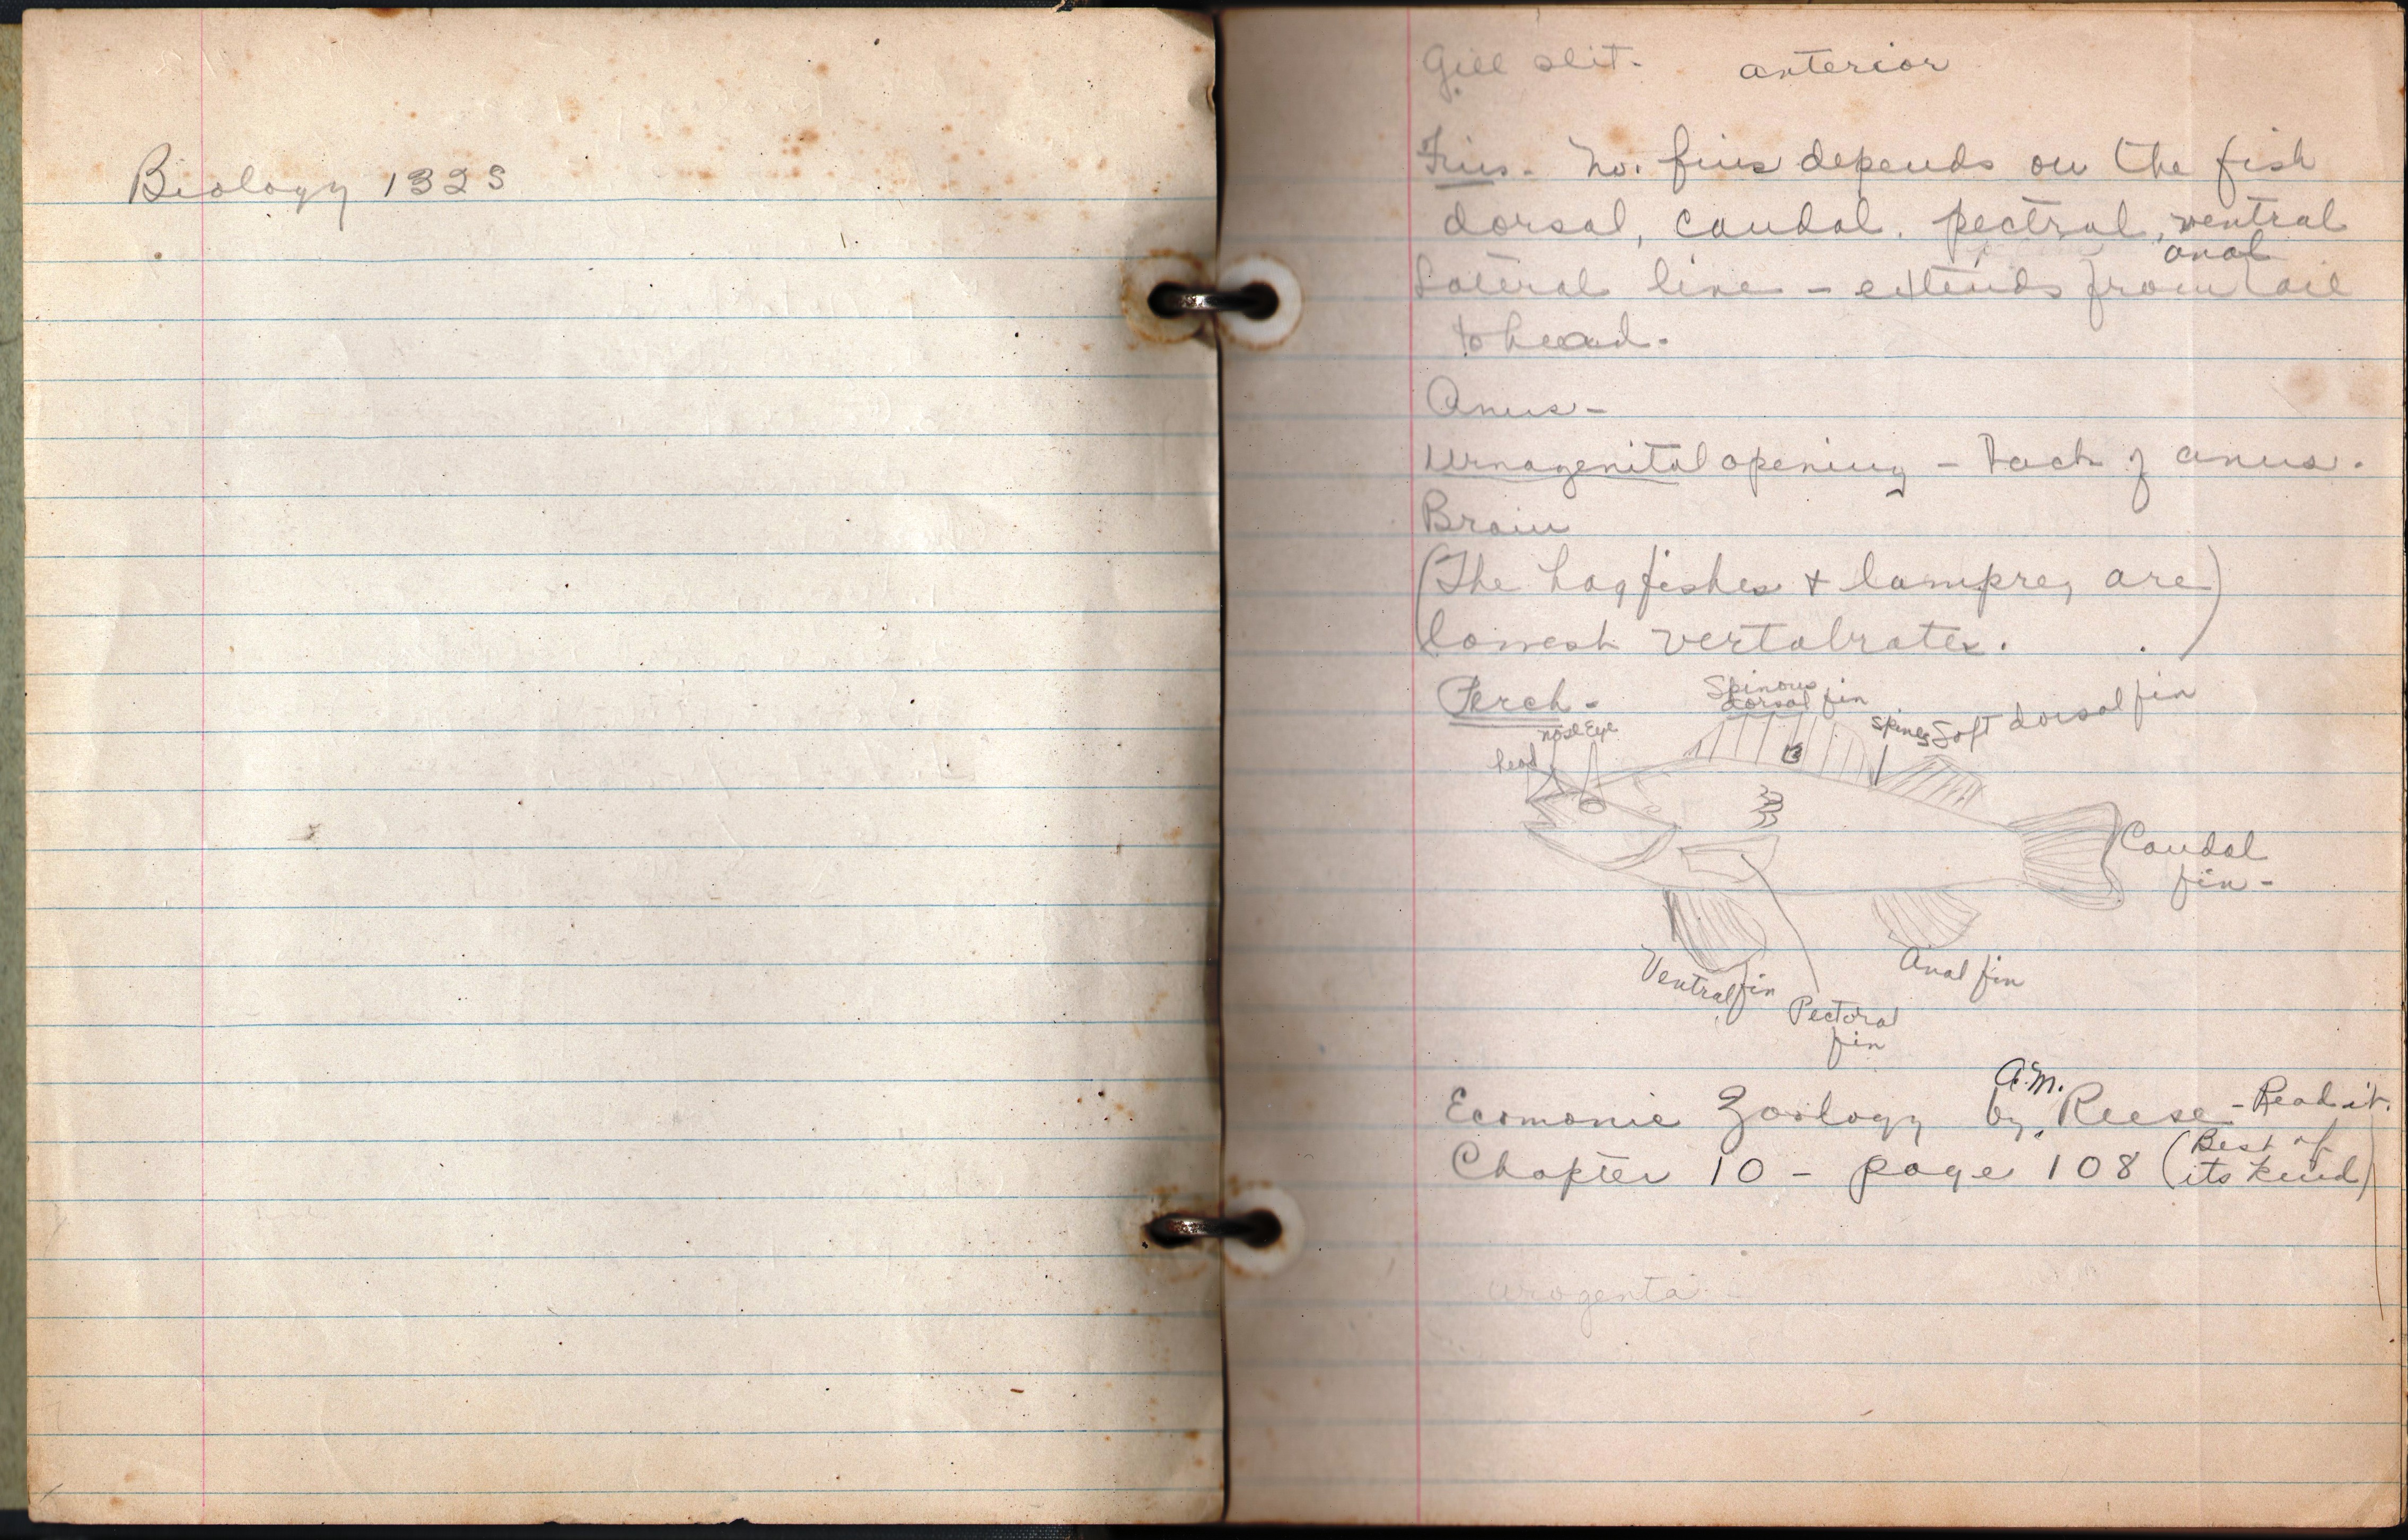 Biology 132S
Gill slit. anterior
Fins. No. fins depends on the fish
dorsal, caudal. pectral, ventral
anal
Lateral line - extends from tail
to head.
Anus-
Urnogenital opening - back of anus.
Brain
(The hagfishes + lamprey are)
lowest vertabrates.
Perch-
Spinous
dorsal fin
spines Soft dorsal fin
nose Eye
head
Caudal
fin-
Ventral fin
Anal fin
Pectoral
fin
A.M.
Ecomonic Zoology by Reese - Read it.
Chapter 10 - page 108 (Best of
its kind)
urogenta